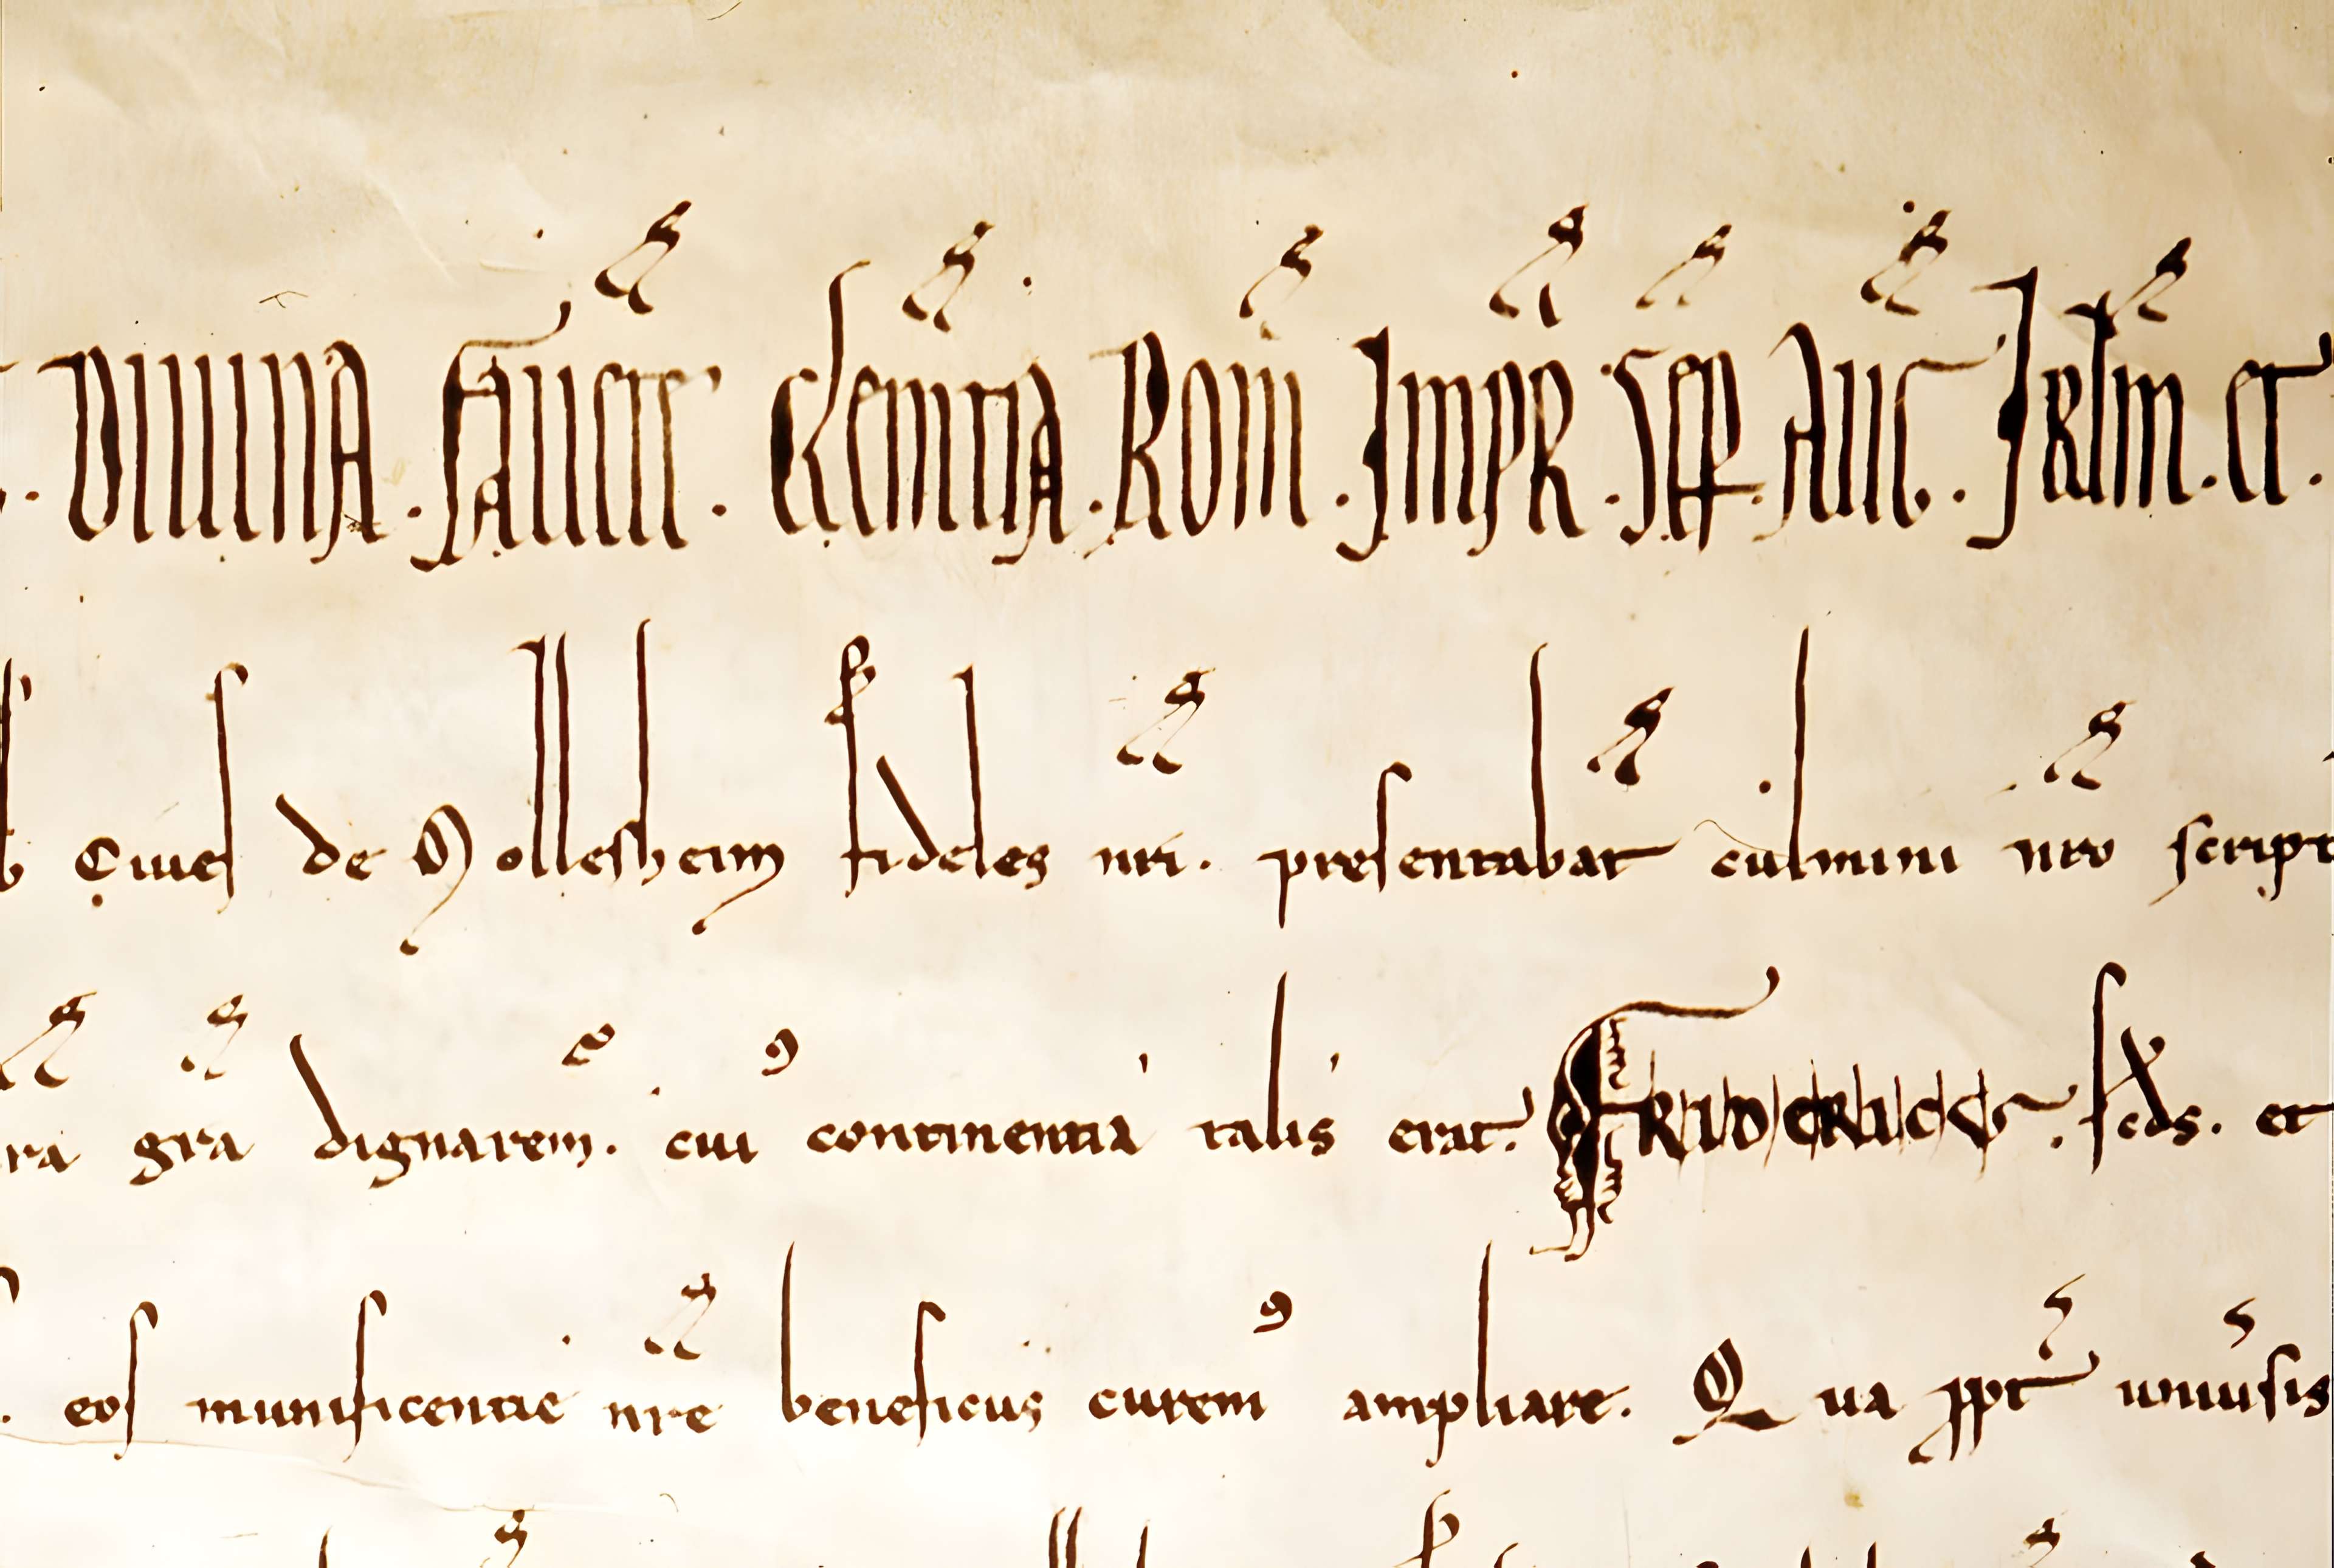 . DIVINA . FAVETE . Clemtia . Rom . Impr . Sep . Aug . Irlm . et .
Ciues de Mollesheim fideles nri . presentabat culmini nro script
ra gra dignarem . cui9 continentia talis erat . FRIDERICUS . scds . et
. eos munificentie nre beneficiis curem9 ampliare . Qua ppt uniusis